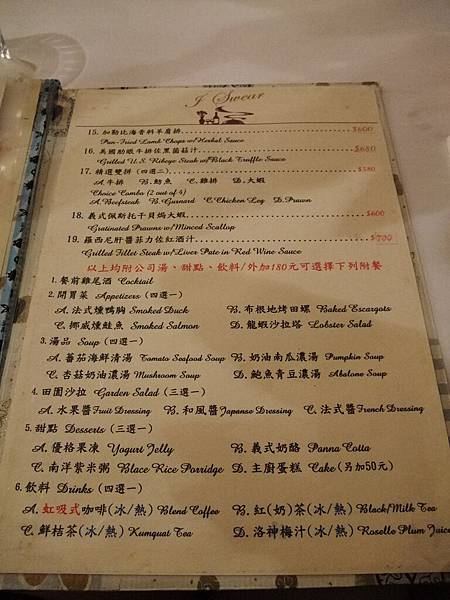 I Swear
15. 加勒比海香料羊肩排 $600
Pan-Fried Lamb Chops w/Herbal Sauce
16. 美國肋眼牛排佐黑菌菇汁 $680
Grilled U.S. Ribeye Steak w/Black Truffle Sauce
17. 精選雙拼 (四選二) $580
A.牛排 B.魴魚 C.雞排 D.大蝦
Choice Combo (2 out of 4)
A.Beefsteak B.Gurnard C.Chicken Leg D.Prawn
18. 義式佩斯托干貝焗大蝦 $600
Gratinated Prawns w/Minced Scallop
19. 羅西尼肝醬菲力佐紅酒汁 $700
Grilled Fillet Steak w/Liver Pate in Red Wine Sauce
以上均附公司湯、甜點、飲料/外加180元可選擇下列附餐
1. 餐前雞尾酒 Cocktail
2. 開胃菜 Appetizers (四選一)
A. 法式燻鴨胸 Smoked Duck B. 布根地烤田螺 Baked Escargots
C. 挪威燻鮭魚 Smoked Salmon D. 龍蝦沙拉塔 Lobster Salad
3. 湯品 Soup (四選一)
A. 蕃茄海鮮清湯 Tomato Seafood Soup B. 奶油南瓜濃湯 Pumpkin Soup
C. 杏菇奶油濃湯 Mushroom Soup D. 鮑魚青豆濃湯 Abalone Soup
4. 田園沙拉 Garden Salad (三選一)
A. 水果醬Fruit Dressing B. 和風醬Japanse Dressing C. 法式醬French Dressing
5. 甜點 Desserts (三選一)
A. 優格果凍 Yogurt Jelly B. 義式奶酪 Panna Cotta
C. 南洋紫米粥 Blace Rice Porridge D. 主廚蛋糕 Cake (另加50元)
6. 飲料 Drinks (四選一)
A. 虹吸式咖啡(冰/熱) Blend Coffee B. 紅(奶)茶(冰/熱) Black/Milk Tea
C. 鮮桔茶(冰/熱) Kumquat Tea D. 洛神梅汁(冰/熱) Roselle Plum Juice